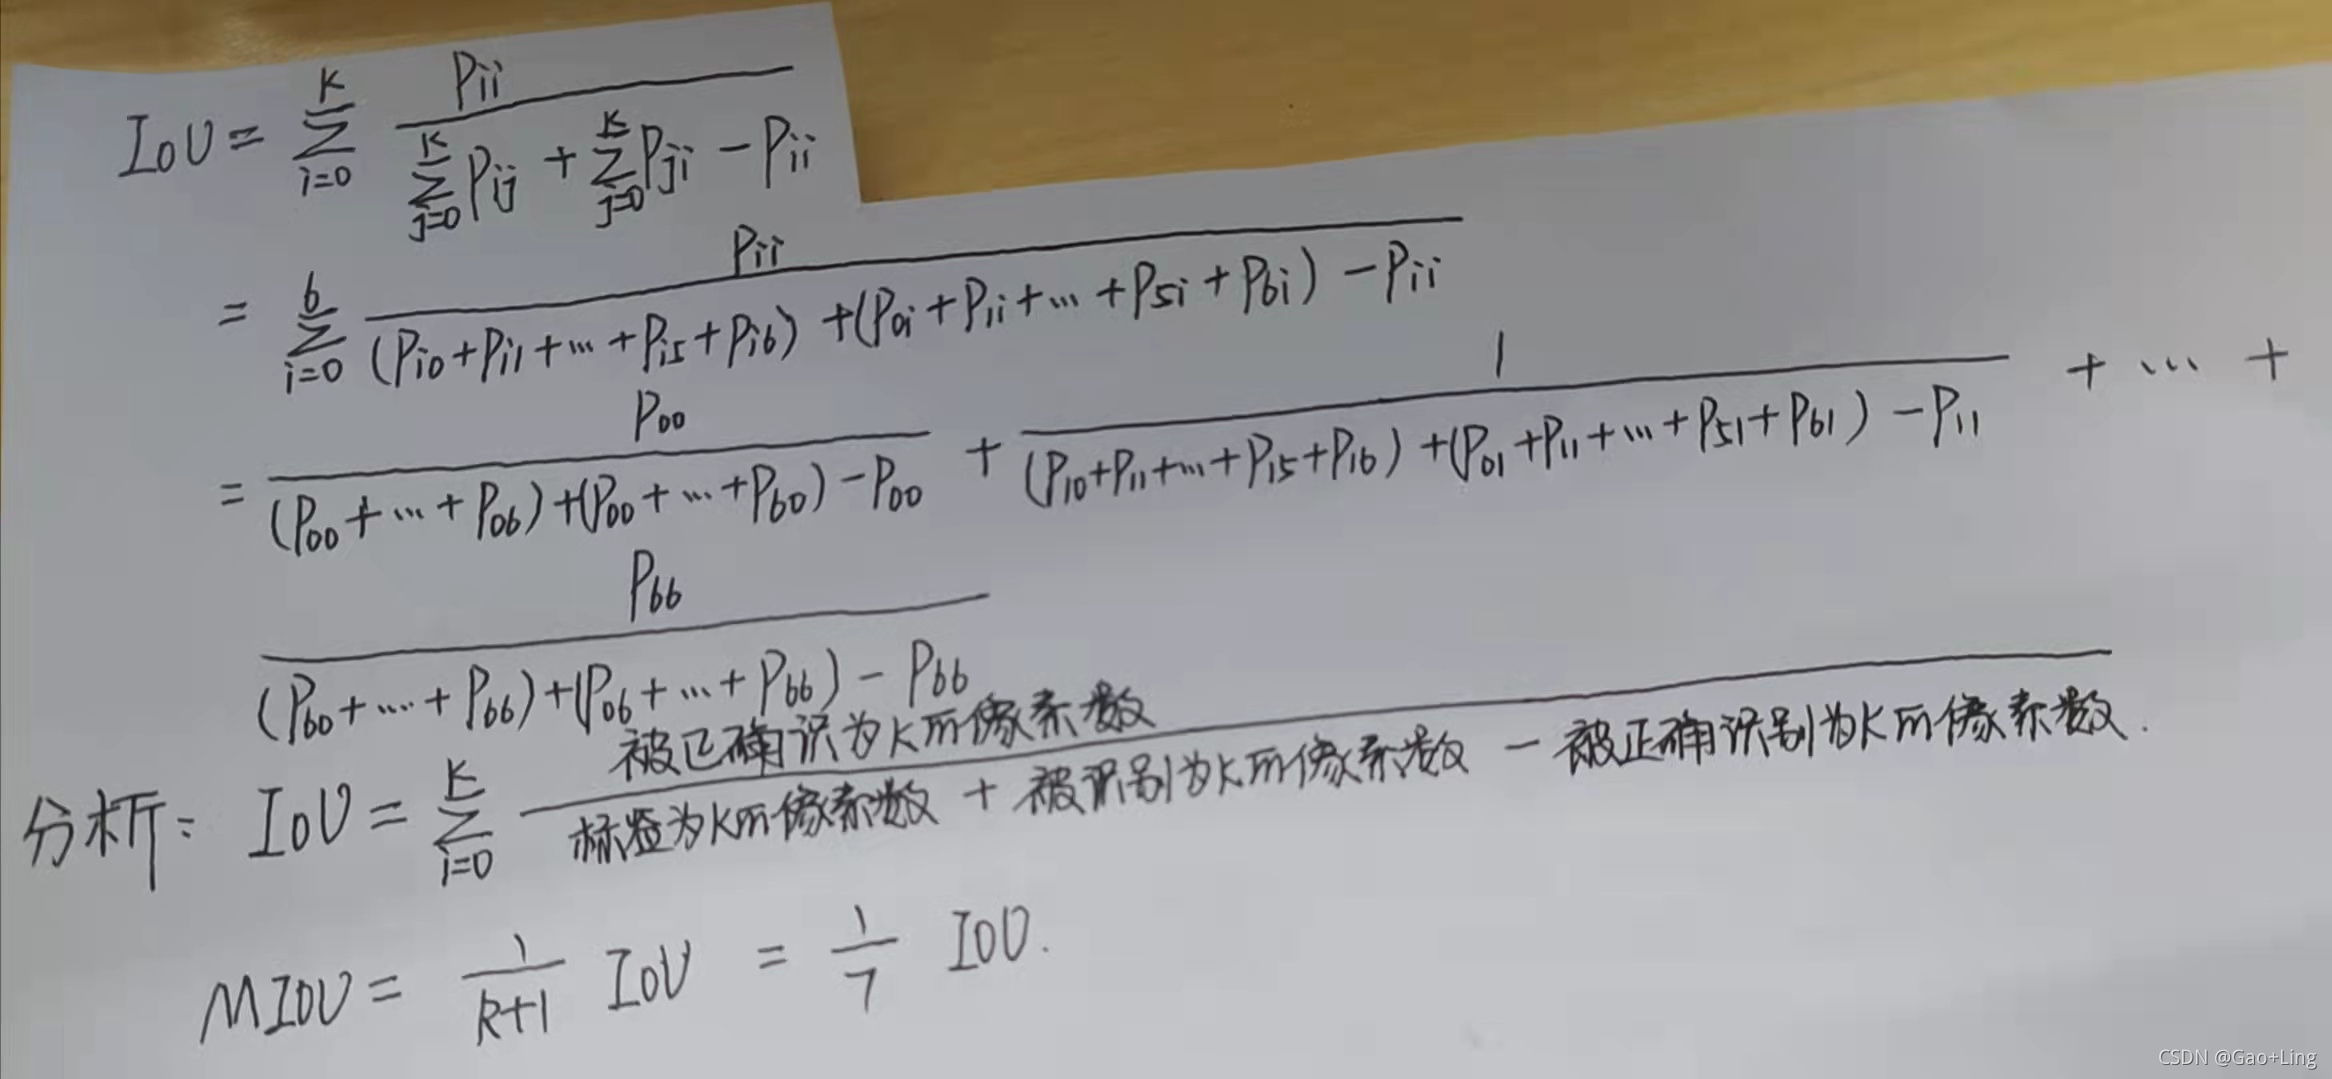 IoU = \sum_{i=0}^{K} \frac{P_{ii}}{\sum_{j=0}^{K} P_{ij} + \sum_{j=0}^{K} P_{ji} - P_{ii}}
= \sum_{i=0}^{6} \frac{P_{ii}}{(P_{i0}+P_{i1}+...+P_{i5}+P_{i6})+(P_{0i}+P_{1i}+...+P_{5i}+P_{6i})-P_{ii}}
= \frac{P_{00}}{(P_{00}+...+P_{06})+(P_{00}+...+P_{60})-P_{00}} + \frac{1}{(P_{10}+P_{11}+...+P_{15}+P_{16})+(P_{01}+P_{11}+...+P_{51}+P_{61})-P_{11}} + ... +
\frac{P_{66}}{(P_{60}+....+P_{66})+(P_{06}+...+P_{66})-P_{66}}
分析: IoU = \sum_{i=0}^{K} \frac{被正确识为K的像素数}{标签为K的像素数 + 被识别为K的像素数 - 被正确识别为K的像素数.}
MIOU = \frac{1}{k+1} IoU = \frac{1}{7} IOU.
CSDN @Gao+Ling